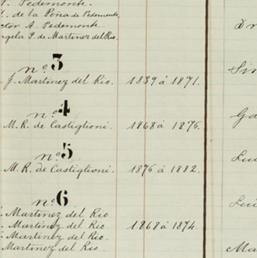 Pedemonte
de la Peña de Pedemonte
A. Pedemonte
P. de Martinez del Rio.
nº 3
J. Martinez del Rio. 1839 á 1871.
nº 4
M. R. de Castiglioni. 1868 á 1876.
nº 5
M. R. de Castiglioni. 1876 á 1882.
nº 6
Martinez del Rio
Martinez del Rio 1868 á 1874.
Martinez del Rio
Martinez del Rio